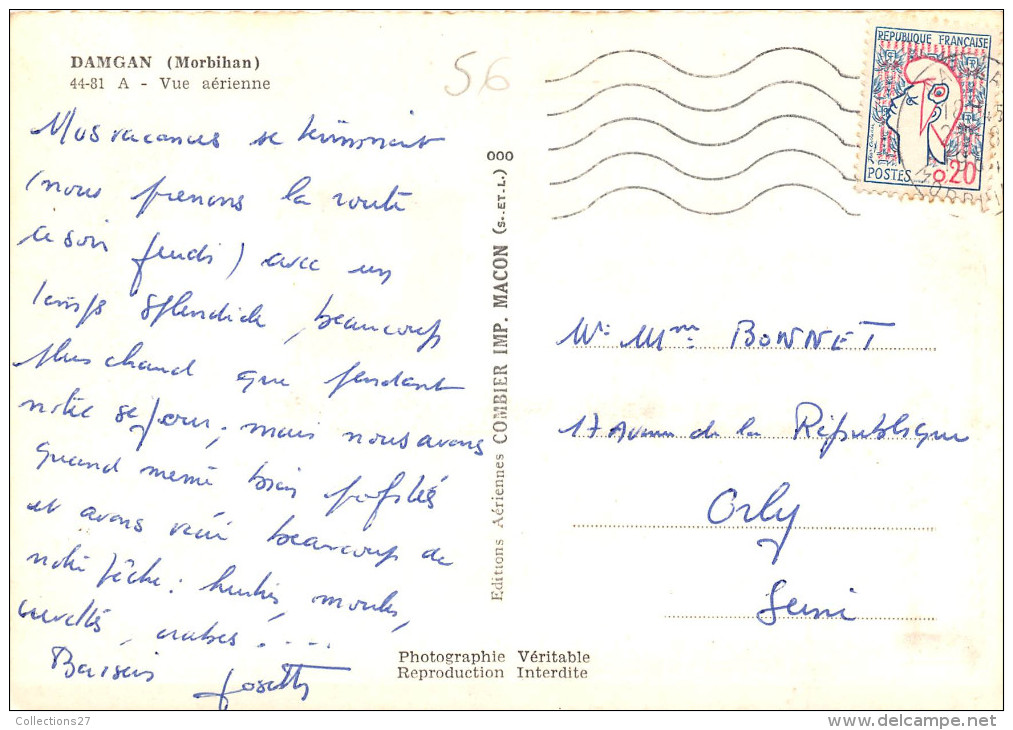 DAMGAN (Morbihan)
44-81 A - Vue aérienne
56
Nos vacances se terminent
(nous prenons la route
ce soir jeudi) avec un
temps splendide, beaucoup
plus chaud que pendant
notre séjour; mais nous avons
quand même bien profités
et avons vécu beaucoup de
notre pêche: huitres, moules,
crevettes, crabes.....
Baisers Josette
Editions Aériennes COMBIER IMP. MACON (S.-ET-L.)
000
REPUBLIQUE FRANCAISE
POSTES 0,20
Mr. Mme BONNET
17 Avenue de la République
Orly
Seine
Photographie Véritable
Reproduction Interdite
Collections27
delcampe.net